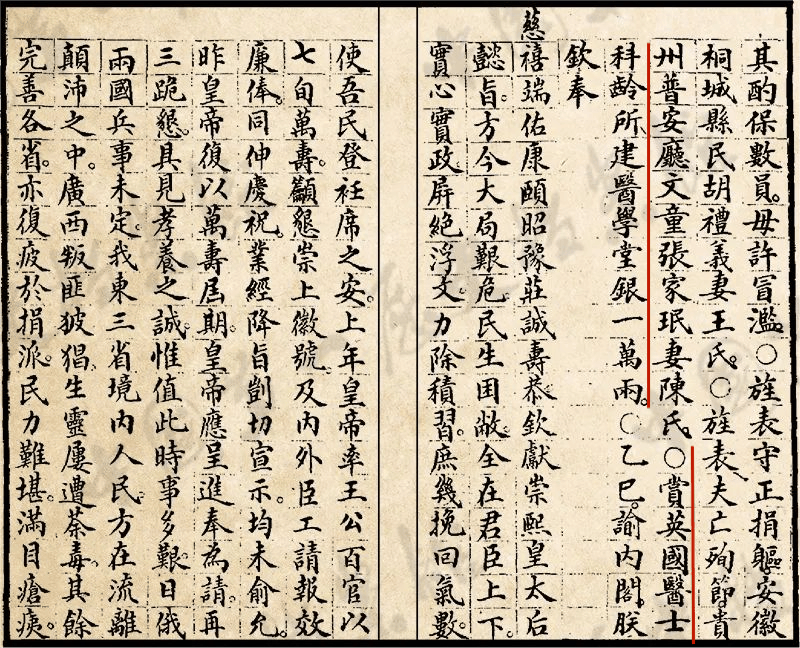 其酌保數員。毋許冒濫。○旌表守正捐軀安徽
桐城縣民胡禮義妻王氏。○旌表夫亡殉節貴
州普安廳文童張家珉妻陳氏。○賞英國醫士
科齡所建醫學堂銀一萬兩。○乙巳。諭內閣。朕
欽奉
慈禧端佑康頤昭豫莊誠壽恭欽獻崇熙皇太后
懿旨。方今大局艱危。民生困敝。全在君臣上下。
實心實政。屏絕浮文。力除積習。庶幾挽回氣數。
使吾民登衽席之安。上年皇帝率王公百官以
七旬萬壽。籲懇崇上徽號。及內外臣工請報效
廉俸。同伸慶祝。業經降旨剴切宣示。均未俞允。
昨皇帝復以萬壽屆期。皇帝應呈進奉為請。再
三跪懇。具見孝養之誠。惟值此時事多艱。日俄
兩國兵事未定。我東三省境內人民方在流離
顛沛之中。廣西叛匪披猖。生靈屢遭荼毒。其餘
完善各省。亦復疲於捐派。民力難堪。滿目瘡痍。